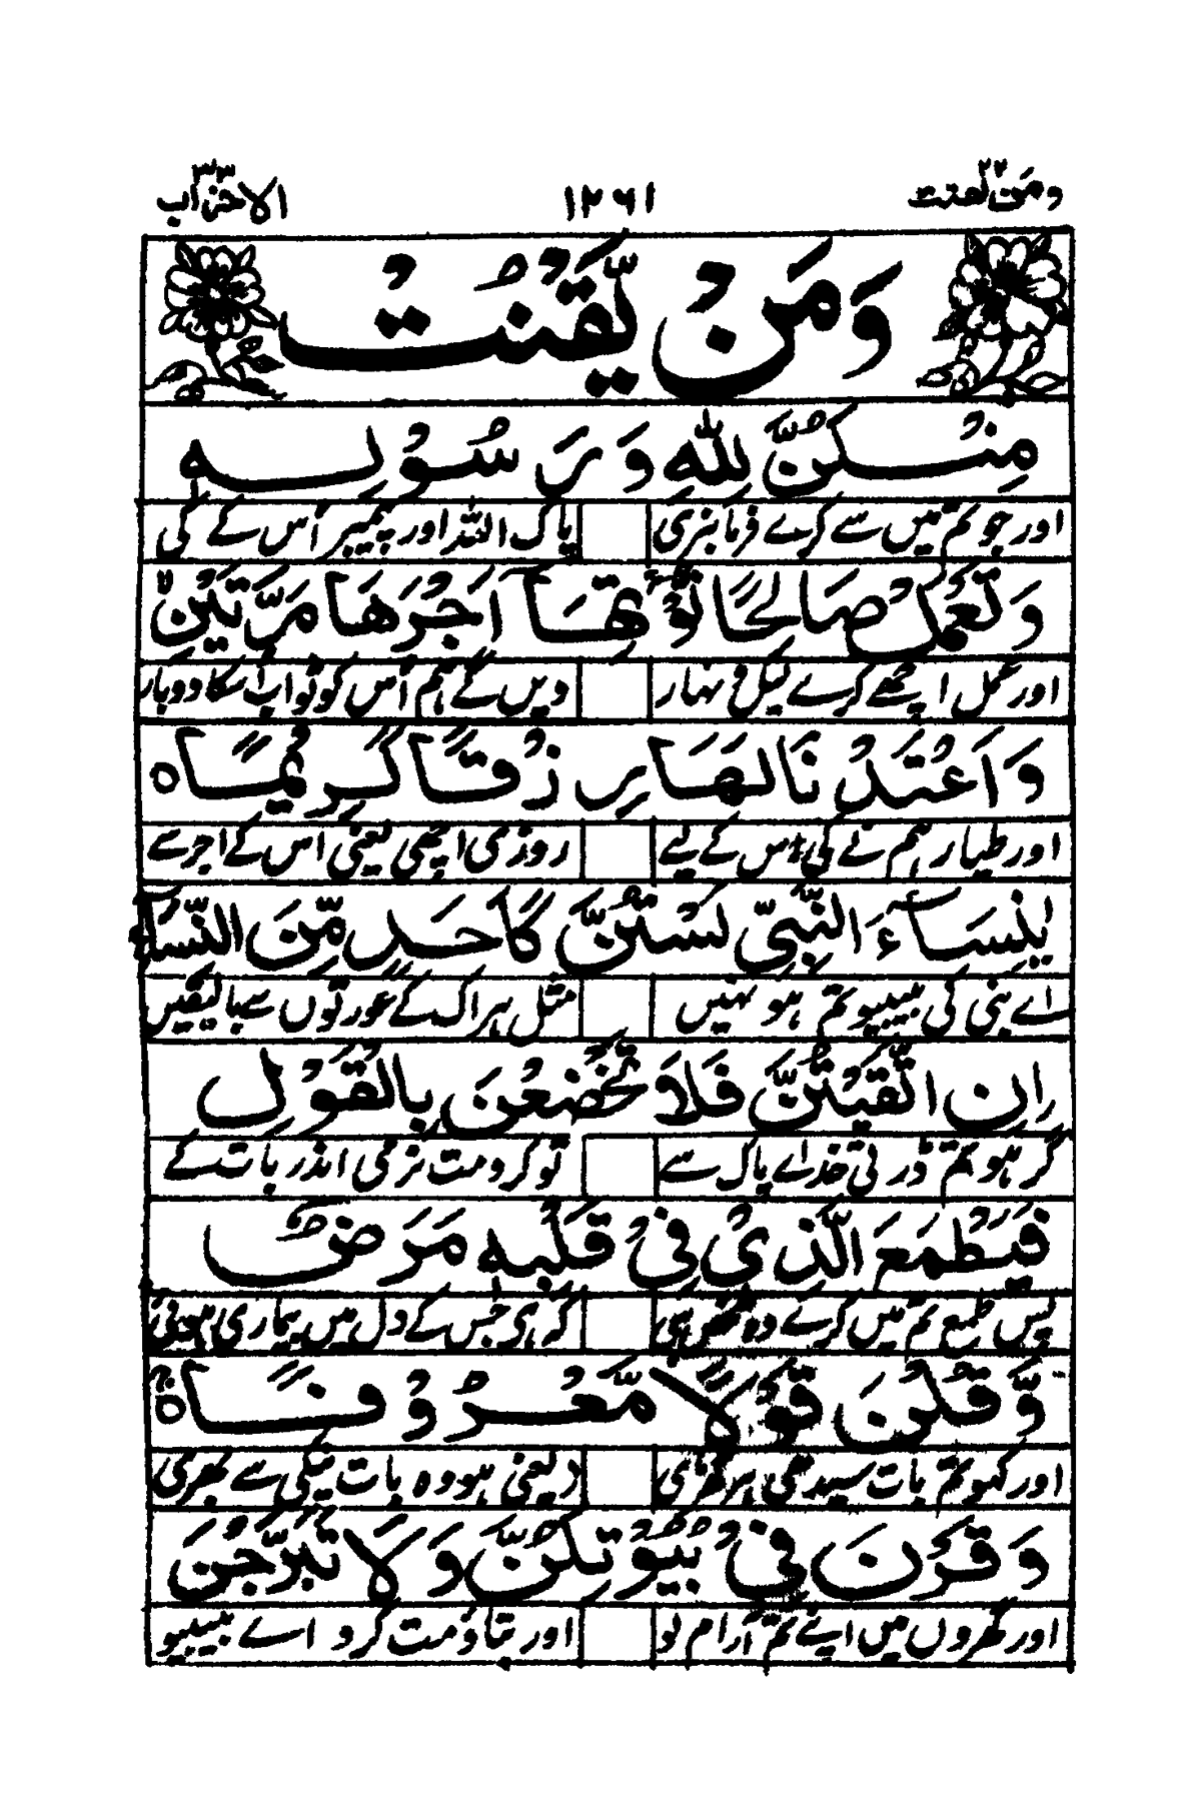 ومن یقنت ۲۲ ۱۲۶۱ الاحزاب ۳۳
وَمَنْ يَّقْنُتْ
مِنْكُنَّ لِلّٰهِ وَرَسُوْلِهٖ
اور جو تم میں سے کرے فرمانبری پاک اللہ اور پیمبر اُس کے کی
وَتَعْمَلْ صَالِحًا نُّؤْتِهَآ اَجْرَهَا مَرَّتَيْنِ
اور عمل اچھے کرے لیل و نہار دیں گے ہم اُس کو ثواب اسکا دوبار
وَاَعْتَدْنَا لَهَا رِزْقًا كَرِيْمًا ه
اور طیار ہم نے کی اس کے لیے روزی اچھی یعنی اس کے اجر سے
يٰنِسَآءَ النَّبِيِّ لَسْتُنَّ كَاَحَدٍ مِّنَ النِّسَآءِ
اے بنی کی بیبیو تم ہو نہیں مثل ہر اک کے عورتوں سے بالیقیں
اِنِ اتَّقَيْتُنَّ فَلَا تَخْضَعْنَ بِالْقَوْلِ
گر ہو تم ڈرتی خداے پاک سے تو کرو مت نرمی اندر بات کے
فَيَطْمَعَ الَّذِيْ فِيْ قَلْبِهٖ مَرَضٌ
پس طمع تم میں کرے وہ شخص ہی کہ ہی جس کے دل میں بیماری ہوئی
وَّقُلْنَ قَوْلًا مَّعْرُوْفًا ه
اور کہو تم بات سیدھی ہر گھڑی یعنی ہووہ بات نیکی سے بھری
وَقَرْنَ فِيْ بُيُوْتِكُنَّ وَلَا تَبَرَّجْنَ
اور گھروں میں اپنے تم آرام لو اور بناؤ مت کرو اے بیبیو